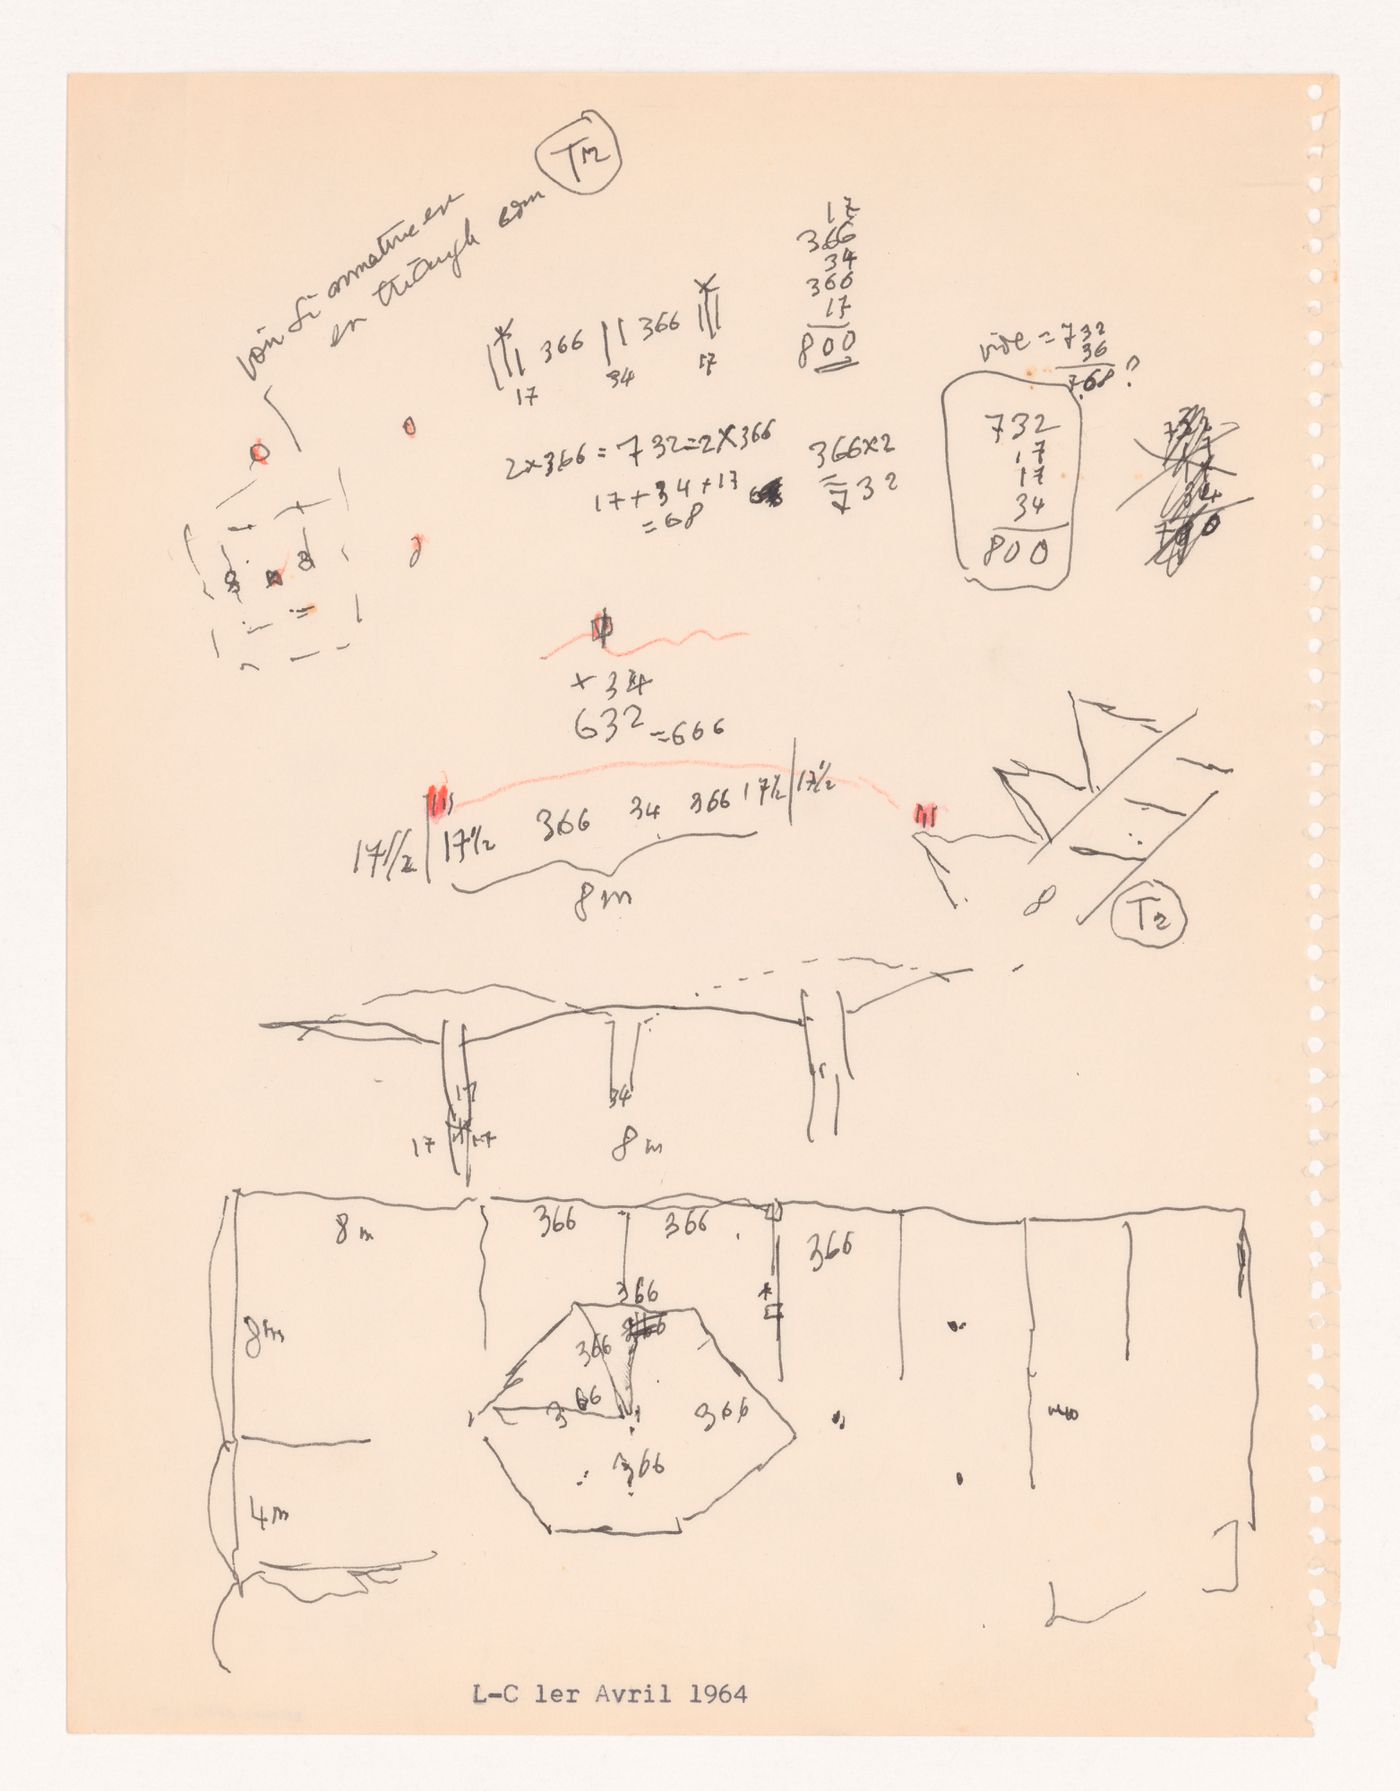 T2
voir si armature en
en triangle com
17
366
34
366
17
800
366 366
17 34 17
vide = 732
36
768?
732
17
17
34
800
2×366 = 732=2×366
17+34+17
=68
366×2
=
732
+ 34
632 =666
17 1/2 17 1/2 366 34 366 17 1/2 17 1/2
8m
8
T2
17
34
17 17
8m
8m 366 366
366
366
8m
366
366
366
366
4m
L-C 1er Avril 1964